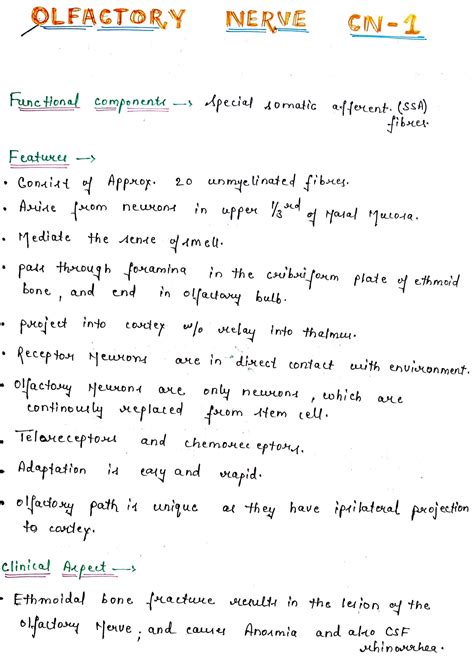 OLFACTORY NERVE CN-1
Functional components → special somatic afferent (SSA)
fibres.
Features →
• Consist of Approx. 20 unmyelinated fibres.
• Arise from neurons in upper 1/3rd of Nasal Mucosa.
• Mediate the sense of smell.
• pass through foramina in the cribriform plate of ethmoid
bone, and end in olfactory bulb.
• project into cortex w/o relay into thalmus.
• Receptor Neurons are in direct contact with environment.
• Olfactory Neurons are only neurons, which are
continously replaced from stem cell.
• Teloreceptors and chemoreceptors.
• Adaptation is easy and rapid.
• olfactory path is unique as they have ipsilateral projection
to cortex.
Clinical Aspect →
• Ethmoidal bone fracture results in the lesion of the
Olfactory Nerve, and causes Anosmia and also CSF
rhinorrhea.